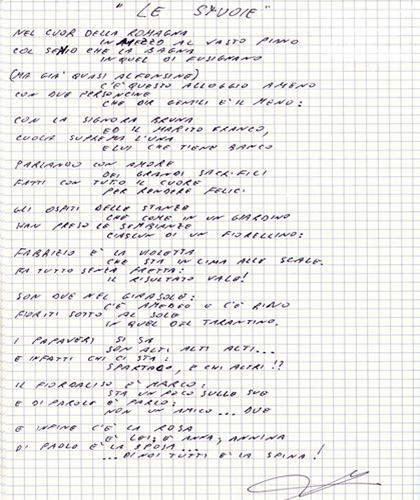 "LE STUOIE"
NEL CUOR DELLA ROMAGNA
IN MEZZO AL VASTO PIANO
COL SENIO CHE LA BAGNA
IN QUEL DI FUSIGNANO
(MA GIA' QUASI ALFONSINO)
C'È QUESTO ALLOGGIO AMENO
CON DUE PERSONCINE
CHE DIR GENTILI È IL MENO:
CON LA SIGNORA BRUNA
ED IL MARITO FRANCO,
CUOCA SUPREMA L'UNA
E LUI CHE TIENE BANCO
PARLANDO CON AMORE
DEI GRANDI SACRIFICI
FATTI CON TUTTO IL CUORE
PER RENDERE FELICI
GLI OSPITI DELLE STANZE
CHE COME IN UN GIARDINO
HAN PRESO LE SEMBIANZE
CIASCUN DI UN FIORELLINO:
FABRIZIO È LA VIOLETTA
CHE STA IN CIMA ALLE SCALE.
FA TUTTO SENZA FRETTA:
IL RISULTATO VALE!
SON DUE NEL GIRASOLE:
C'È AMEDEO E C'È RINO
FIORITI SOTTO AL SOLE
IN QUEL DEL TARANTINO.
I PAPAVERI SI SA
SON ALTI ALTI ALTI...
E INFATTI CHI CI STA:
SPARTACO, E CHI ALTRI!?
IL FIORDALISO È MARCO:
STA UN POCO SULLE SUE
E DI PAROLE È PARCO:
NON UN AMICO... DUE
E INFINE C'È LA ROSA
È LEI: È ANNA, ANNINA
DI PAOLO È LA SPOSA...
...DI NOI TUTTI È LA SPINA!